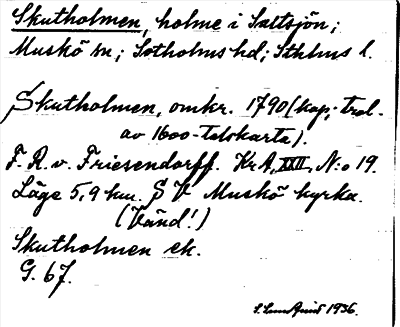 Skutholmen, holme i Saltsjön;
Muskö sn; Sotholms hd; Sthlms l.
Skutholmen, omkr. 1790 (kop; trol.
av 1600-talskarta).
F. R. v. Friesendorff. KrA, XXII, N:o 19.
Läge 5,9 km. SV Muskö kyrka.
(Vänd!)
Skutholmen ek.
G. 67.
S. Lundquist 1936.